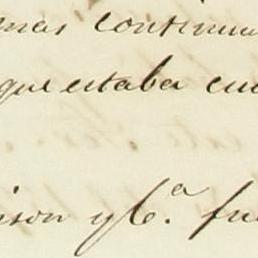 mas continua
que estaba cu
ison y C.ª fu